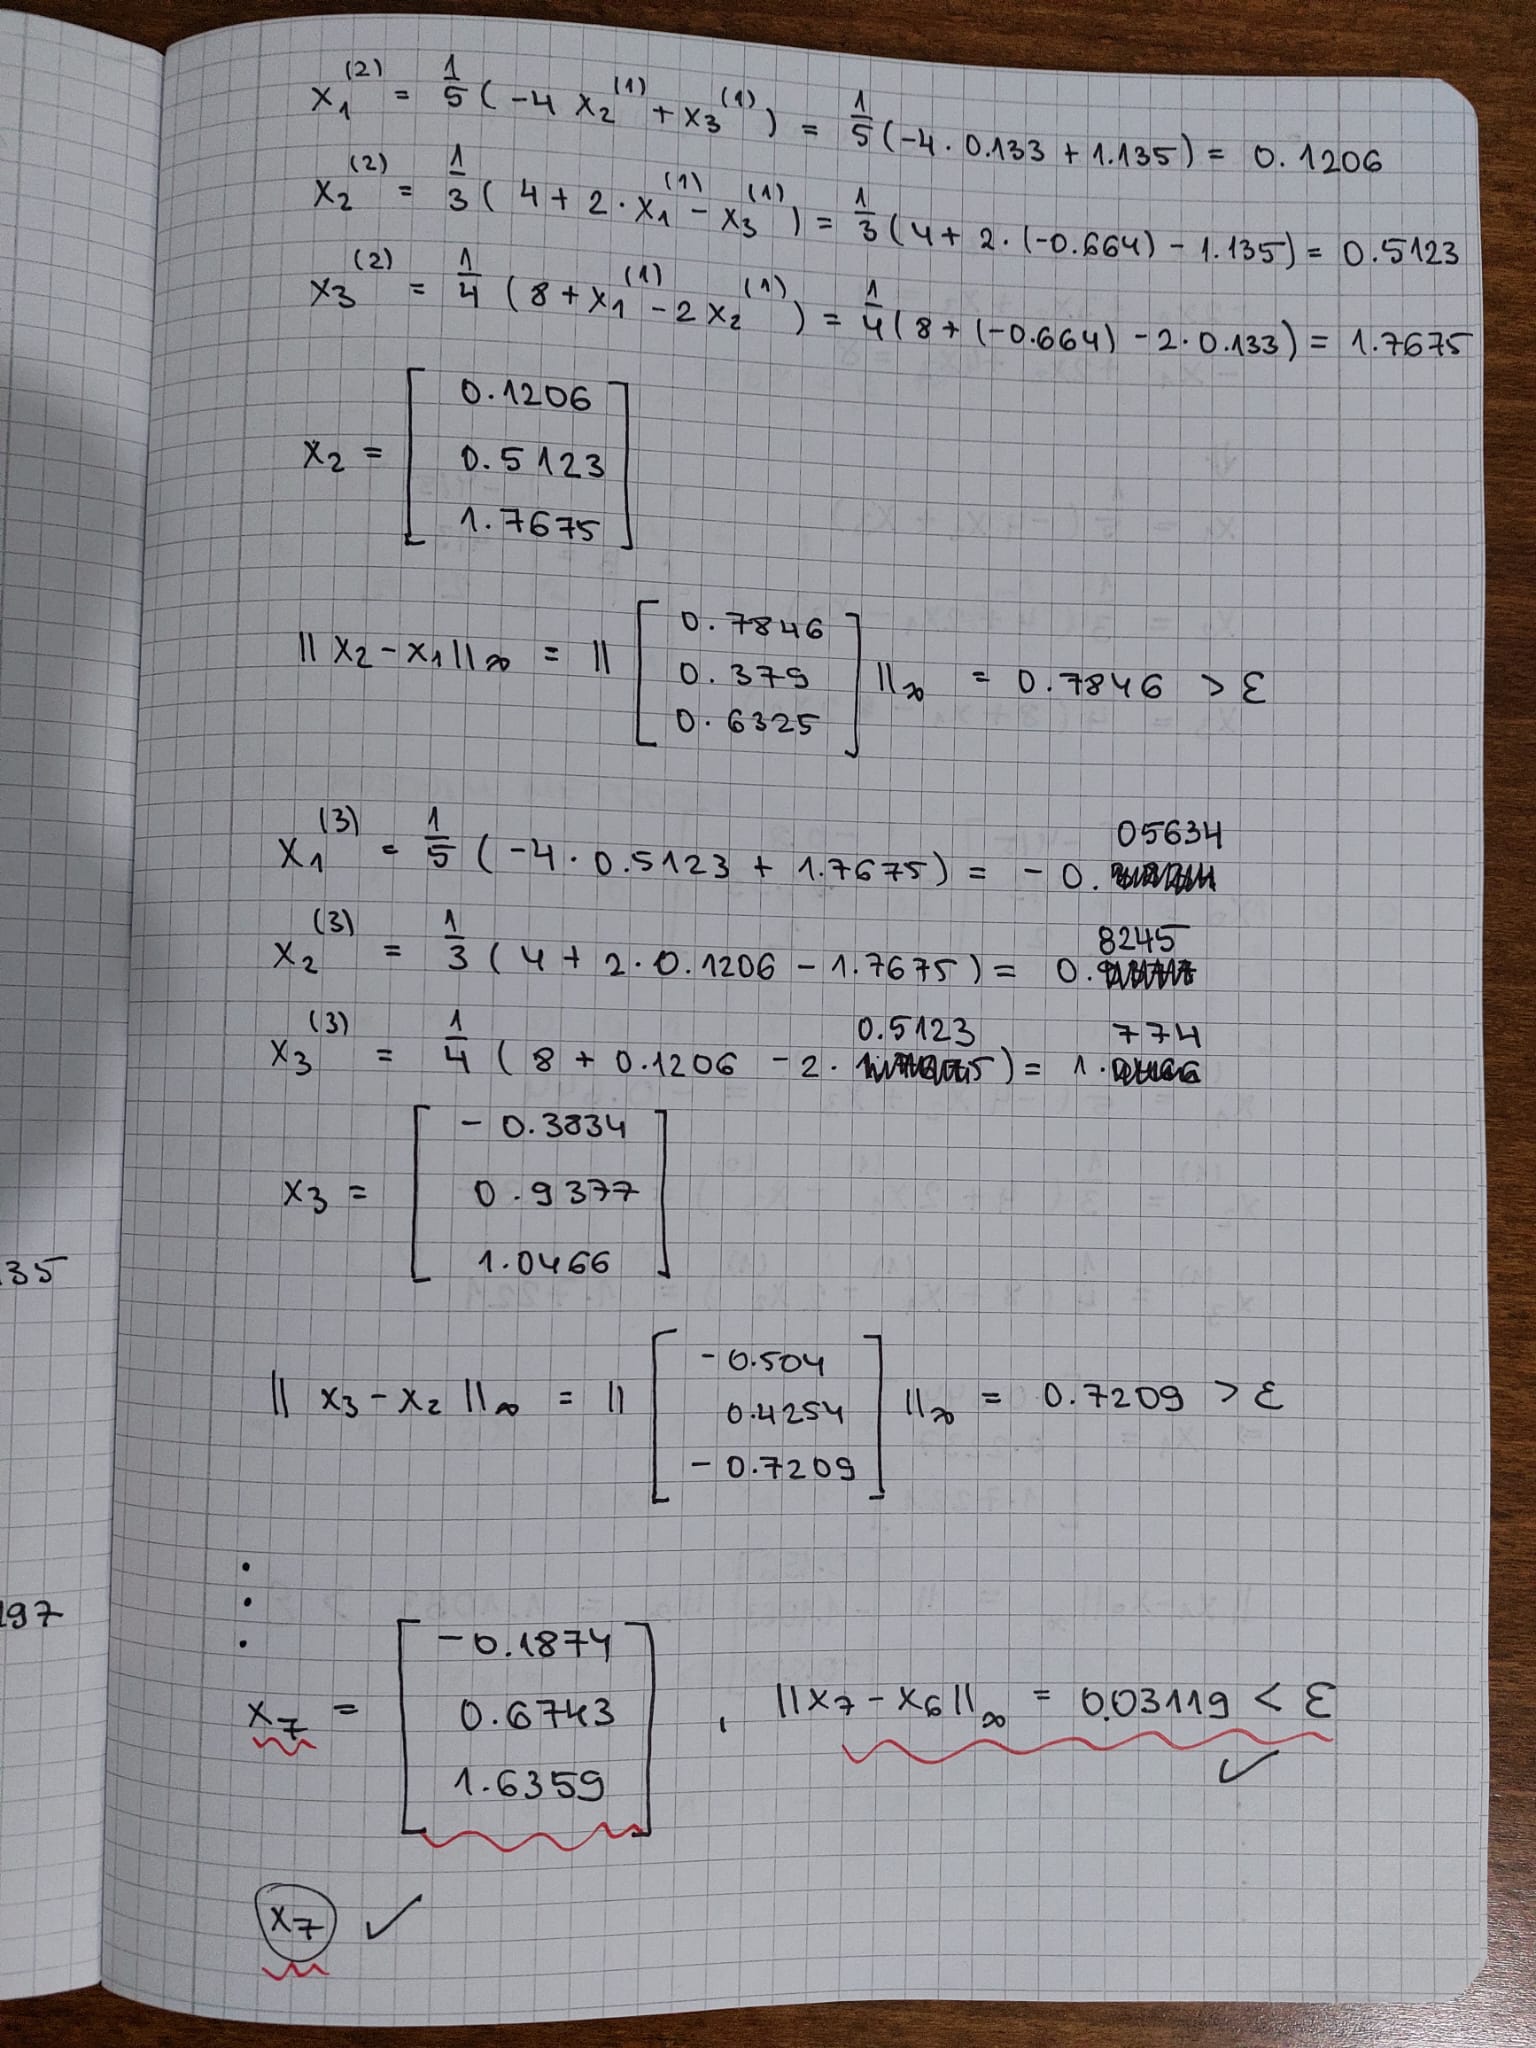 x₁⁽²⁾ = 1/5 ( -4 x₂⁽¹⁾ + x₃⁽¹⁾ ) = 1/5 (-4 · 0.133 + 1.135) = 0.1206
x₂⁽²⁾ = 1/3 ( 4 + 2 · x₁⁽¹⁾ - x₃⁽¹⁾ ) = 1/3 (4 + 2 · (-0.664) - 1.135) = 0.5123
x₃⁽²⁾ = 1/4 ( 8 + x₁⁽¹⁾ - 2 x₂⁽¹⁾ ) = 1/4 (8 + (-0.664) - 2 · 0.133) = 1.7675
0.1206
x₂ = [ 0.5123 ]
1.7675
0.7846
|| x₂ - x₁ ||∞ = || [ 0.379 ] ||∞ = 0.7846 > ε
0.6325
x₁⁽³⁾ = 1/5 ( -4 · 0.5123 + 1.7675) = - 0.05634
x₂⁽³⁾ = 1/3 ( 4 + 2 · 0.1206 - 1.7675) = 0.8245
x₃⁽³⁾ = 1/4 ( 8 + 0.1206 - 2 · 0.5123 ) = 1.774
- 0.3834
x₃ = [ 0.9377 ]
1.0466
-0.504
|| x₃ - x₂ ||∞ = || [ 0.4254 ] ||∞ = 0.7209 > ε
-0.7209
⋮
-0.1874
x₇ = [ 0.6743 ] , || x₇ - x₆ ||∞ = 0.03119 < ε ✓
1.6359
x₇ ✓
35
197